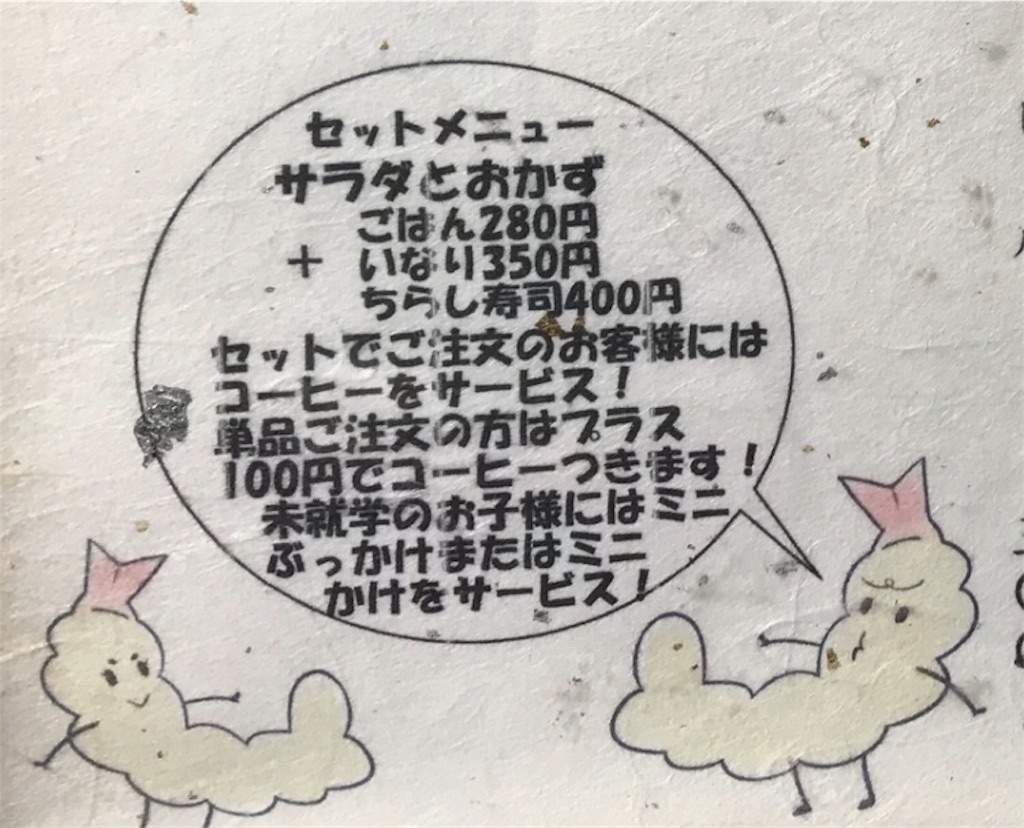 セットメニュー
サラダとおかず
ごはん280円
+ いなり350円
ちらし寿司400円
セットでご注文のお客様には
コーヒーをサービス!
単品ご注文の方はプラス
100円でコーヒーつきます!
未就学のお子様にはミニ
ぶっかけまたはミニ
かけをサービス!